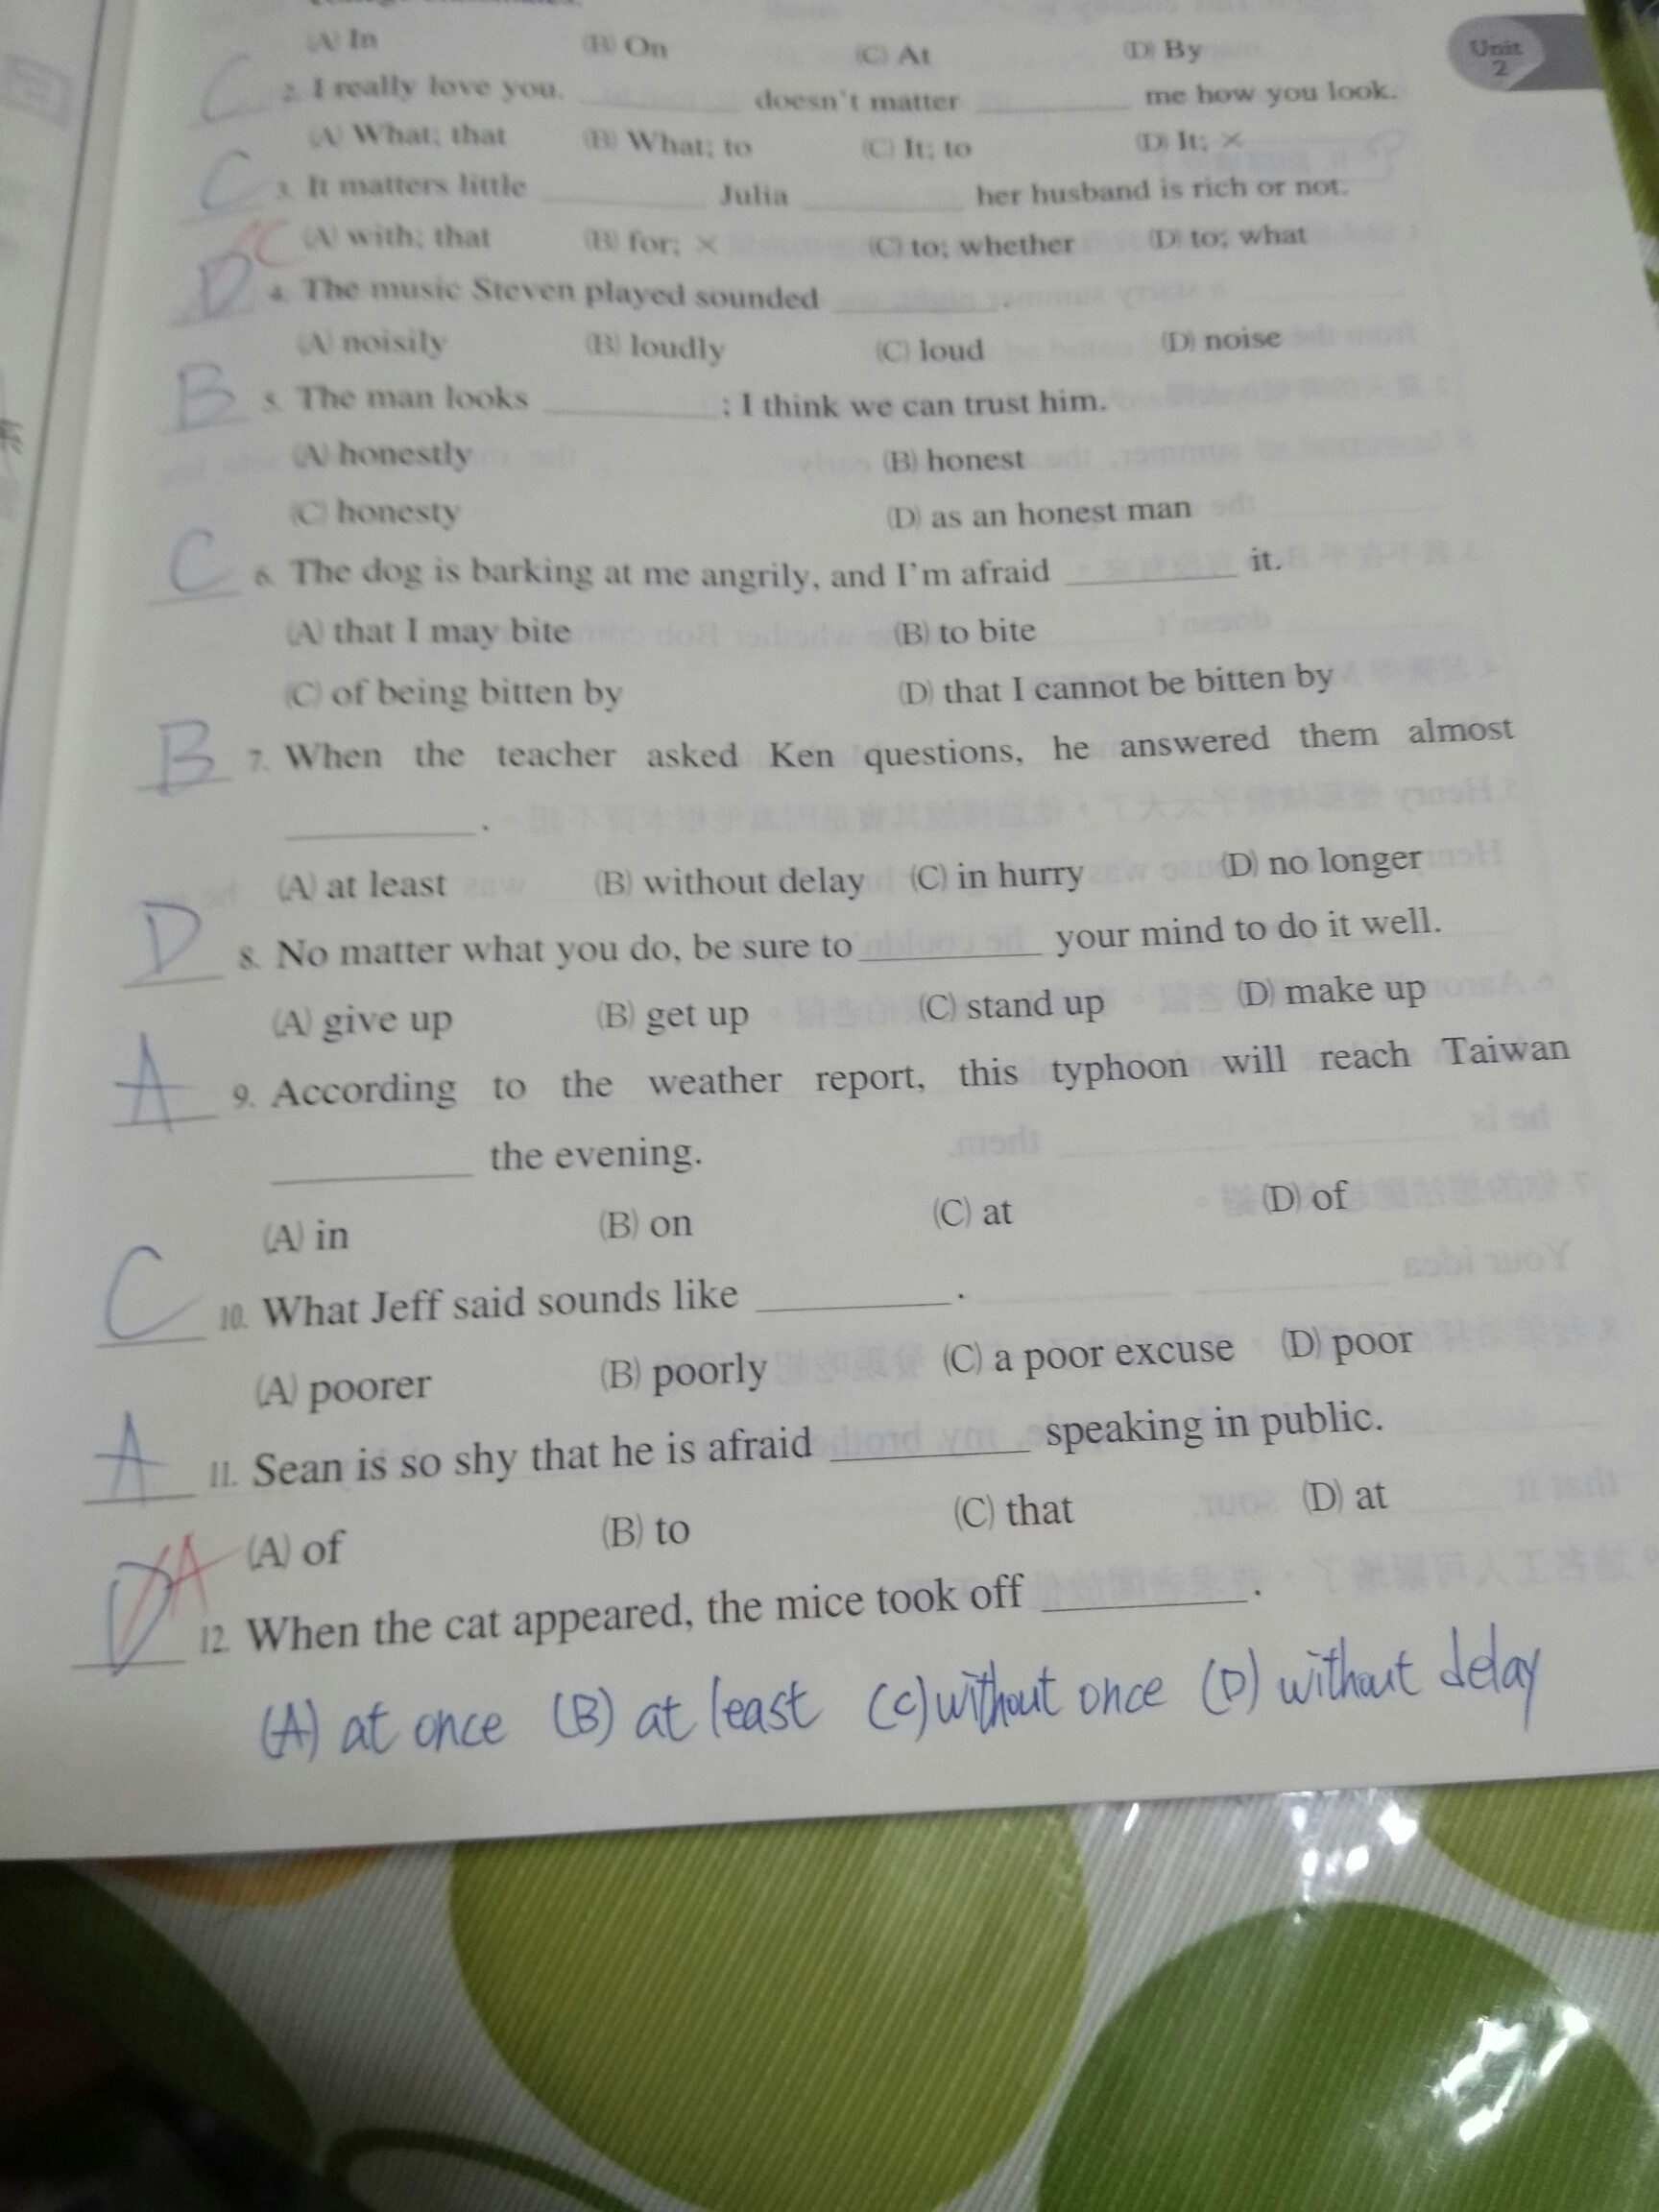 (A) In (B) On (C) At (D) By
Unit
2
C 2. I really love you. ________ doesn't matter ________ me how you look.
(A) What; that (B) What; to (C) It; to (D) It; ×
C 3. It matters little ________ Julia ________ her husband is rich or not.
(A) with; that (B) for; × (C) to; whether (D) to; what
D C 4. The music Steven played sounded ________.
(A) noisily (B) loudly (C) loud (D) noise
B 5. The man looks ________; I think we can trust him.
(A) honestly (B) honest
(C) honesty (D) as an honest man
C 6. The dog is barking at me angrily, and I'm afraid ________ it.
(A) that I may bite (B) to bite
(C) of being bitten by (D) that I cannot be bitten by
B 7. When the teacher asked Ken questions, he answered them almost
________.
(A) at least (B) without delay (C) in hurry (D) no longer
D 8. No matter what you do, be sure to ________ your mind to do it well.
(A) give up (B) get up (C) stand up (D) make up
A 9. According to the weather report, this typhoon will reach Taiwan
________ the evening.
(A) in (B) on (C) at (D) of
C 10. What Jeff said sounds like ________.
(A) poorer (B) poorly (C) a poor excuse (D) poor
A 11. Sean is so shy that he is afraid ________ speaking in public.
(A) of (B) to (C) that (D) at
D A 12. When the cat appeared, the mice took off ________.
(A) at once (B) at least (C) without once (D) without delay